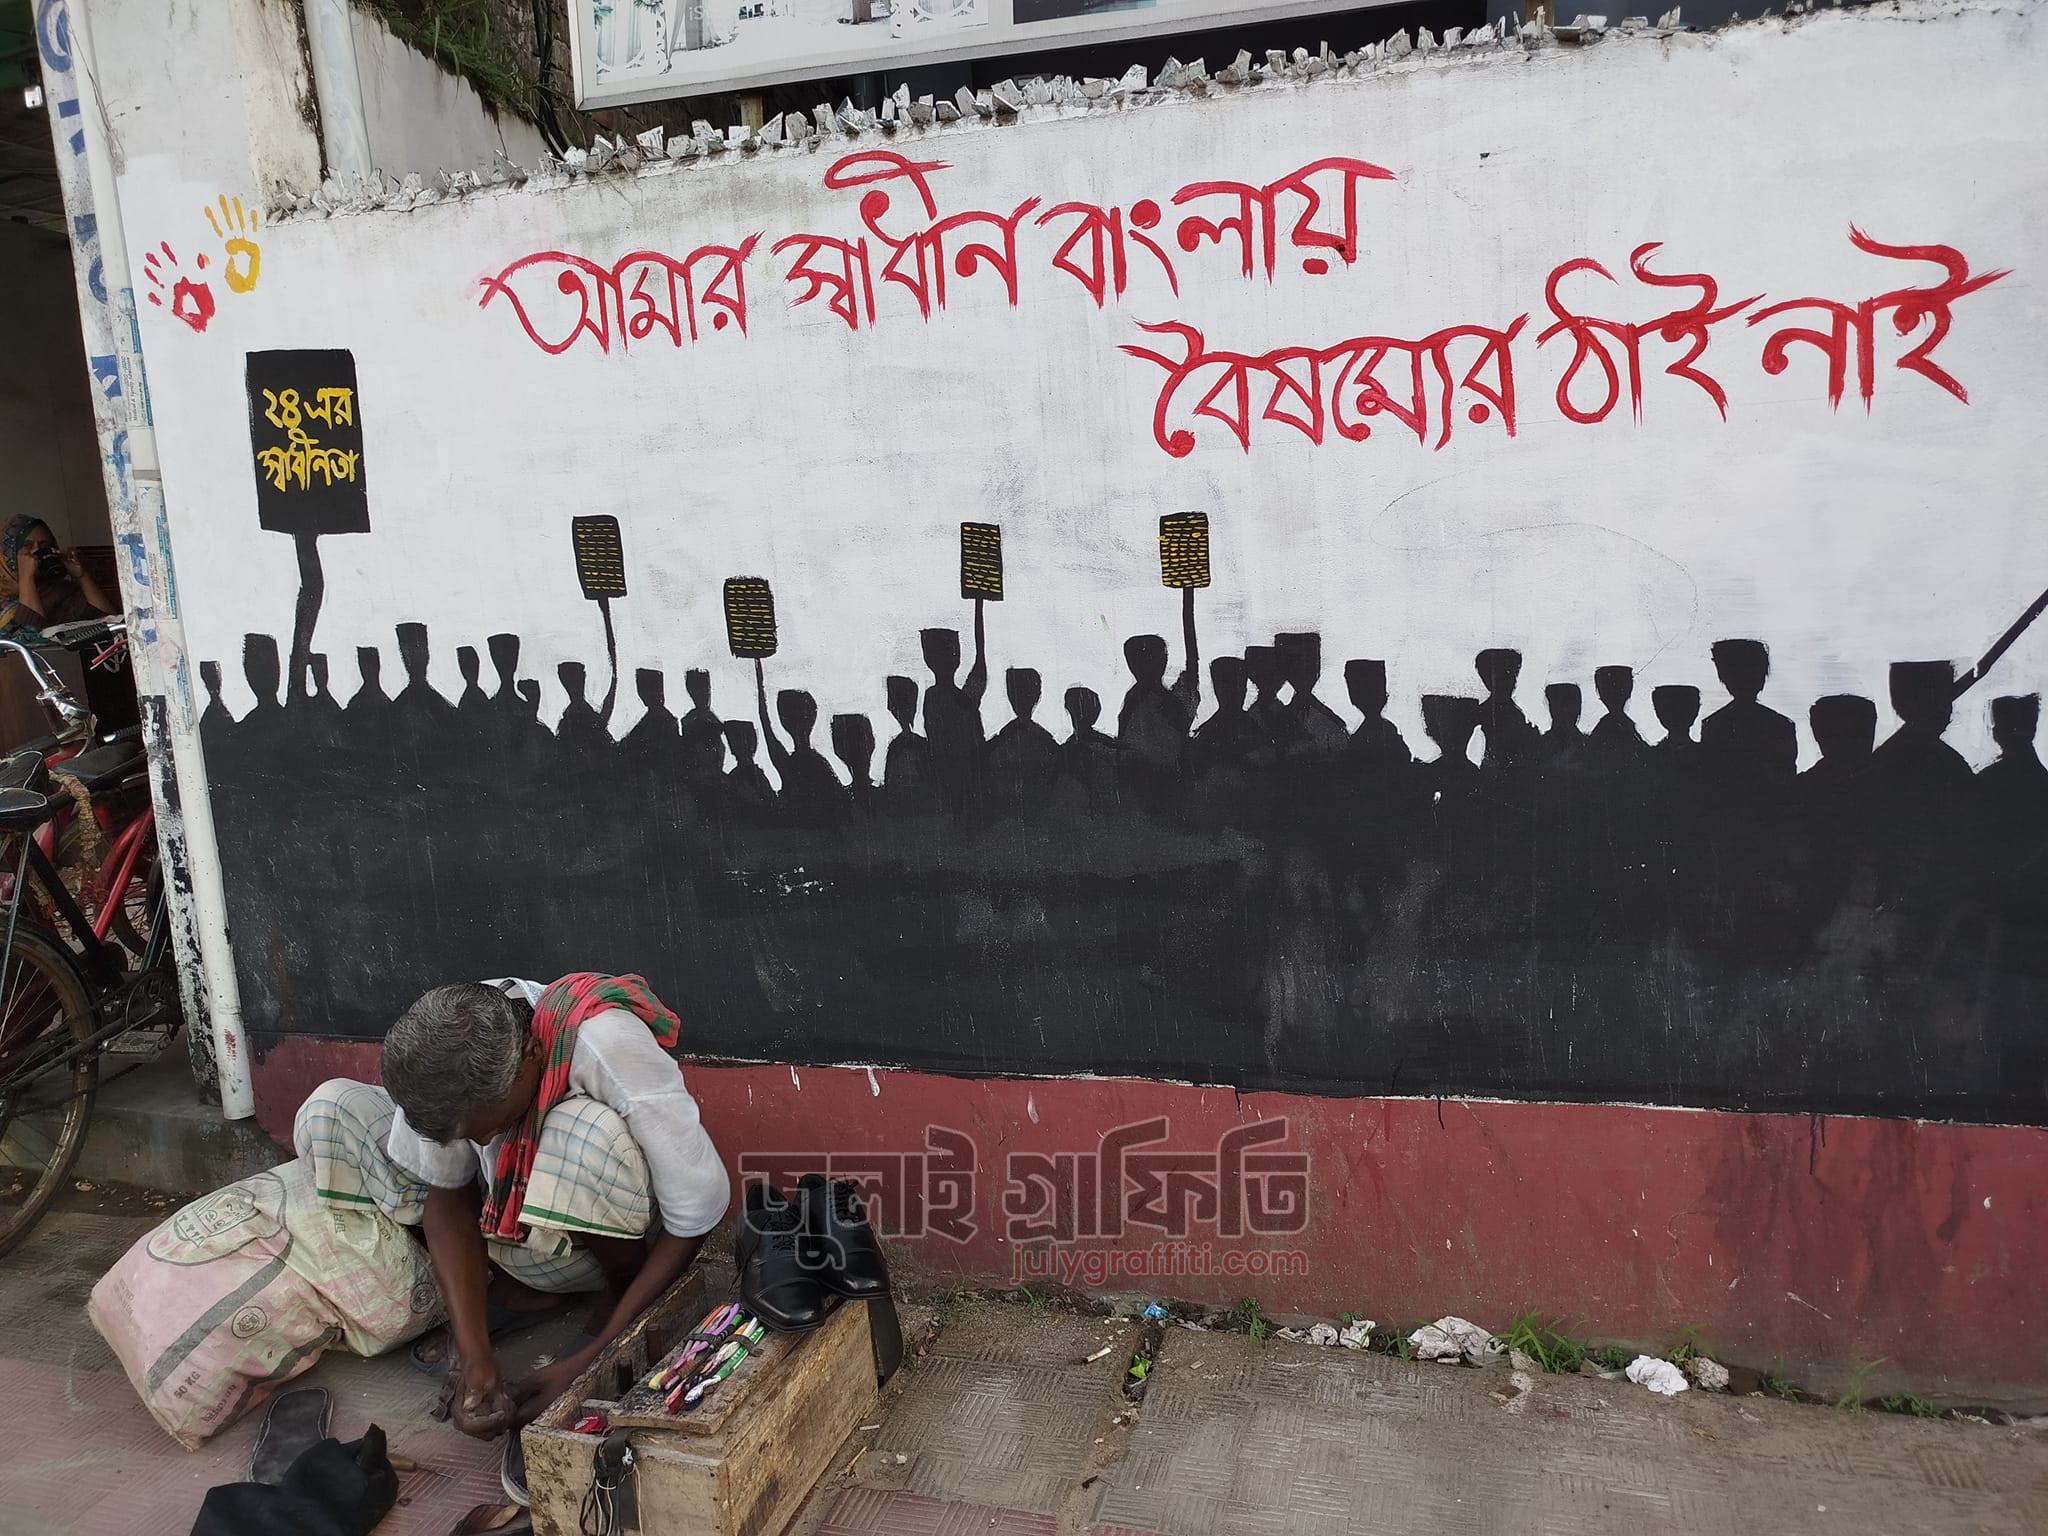 আমার স্বাধীন বাংলায়
বৈষম্যের ঠাই নাই
২৪ এর
স্বাধীনতা
জুলাই গ্রাফিতি
julygraffiti.com
50 KG